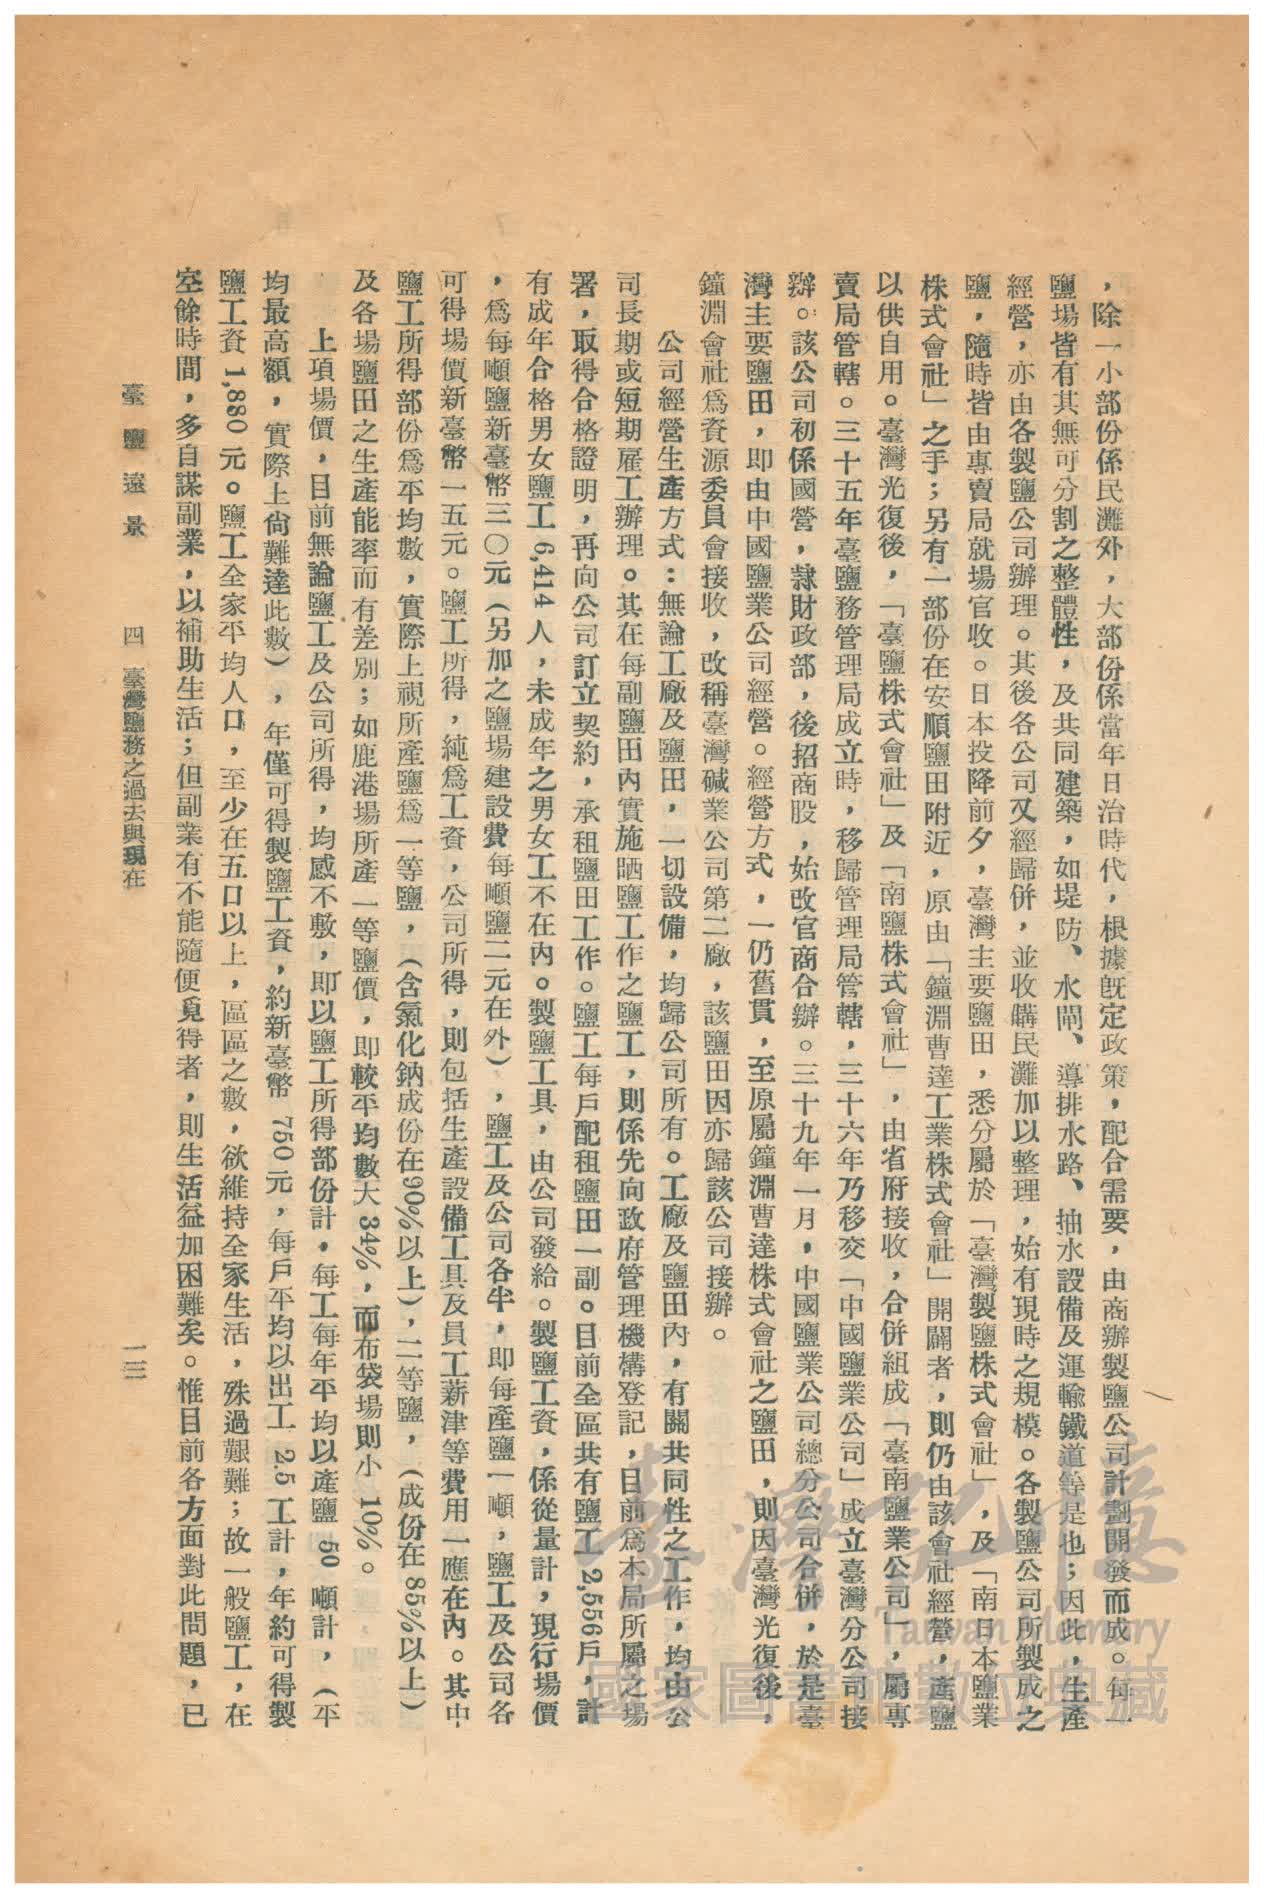 ，除一小部份係民灘外，大部份係當年日治時代，根據旣定政策，配合需要，由商辦製鹽公司計劃開發而成。每一
鹽場皆有其無可分割之整體性，及共同建築，如堤防、水閘、導排水路、抽水設備及運輸鐵道等是也；因此，生產
經營，亦由各製鹽公司辦理。其後各公司又經歸併，並收購民灘加以整理，始有現時之規模。各製鹽公司所製成之
鹽，隨時皆由專賣局就場官收。日本投降前夕，臺灣主要鹽田，悉分屬於「臺灣製鹽株式會社」，及「南日本鹽業
株式會社」之手；另有一部份在安順鹽田附近，原由「鐘淵曹達工業株式會社」開闢者，則仍由該會社經營，產鹽
以供自用。臺灣光復後，「臺鹽株式會社」及「南鹽株式會社」，由省府接收，合併組成「臺南鹽業公司」，屬專
賣局管轄。三十五年臺鹽務管理局成立時，移歸管理局管轄，三十六年乃移交「中國鹽業公司」成立臺灣分公司接
辦。該公司初係國營，隸財政部，後招商股，始改官商合辦。三十九年一月，中國鹽業公司總分公司合併，於是臺
灣主要鹽田，即由中國鹽業公司經營。經營方式，一仍舊貫，至原屬鐘淵曹達株式會社之鹽田，則因臺灣光復後，
鐘淵會社爲資源委員會接收，改稱臺灣碱業公司第二廠，該鹽田因亦歸該公司接辦。
公司經營生產方式：無論工廠及鹽田，一切設備，均歸公司所有。工廠及鹽田內，有關共同性之工作，均由公
司長期或短期雇工辦理。其在每副鹽田內實施晒鹽工作之鹽工，則係先向政府管理機構登記，目前爲本局所屬之場
署，取得合格證明，再向公司訂立契約，承租鹽田工作。鹽工每戶配租鹽田一副。目前全區共有鹽工 2,556戶，計
有成年合格男女鹽工 6,414 人，未成年之男女工不在內。製鹽工具，由公司發給。製鹽工資，係從量計，現行場價
，爲每噸鹽新臺幣三〇元（另加之鹽場建設費每噸鹽二元在外），鹽工及公司各半，即每產鹽一噸，鹽工及公司各
可得場價新臺幣一五元。鹽工所得，純爲工資，公司所得，則包括生產設備工具及員工薪津等費用一應在內。其中
鹽工所得部份爲平均數，實際上視所產鹽爲一等鹽，（含氯化鈉成份在90%以上），二等鹽，（成份在 85%以上）
及各場鹽田之生產能率而有差別；如鹿港場所產一等鹽價，即較平均數大 34%，而布袋場則小 10%。
上項場價，目前無論鹽工及公司所得，均感不敷，即以鹽工所得部份計，每工每年平均以產鹽 50 噸計，（平
均最高額，實際上尙難達此數），年僅可得製鹽工資，約新臺幣 750元，每戶平均以出工 2.5 工計，年約可得製
鹽工資 1,880 元。鹽工全家平均人口，至少在五口以上，區區之數，欲維持全家生活，殊過艱難；故一般鹽工，在
空餘時間，多自謀副業，以補助生活；但副業有不能隨便覓得者，則生活益加困難矣。惟目前各方面對此問題，已
臺鹽遠景　四　臺灣鹽務之過去與現在　一三
臺灣記憶
Taiwan Memory
國家圖書館數位典藏